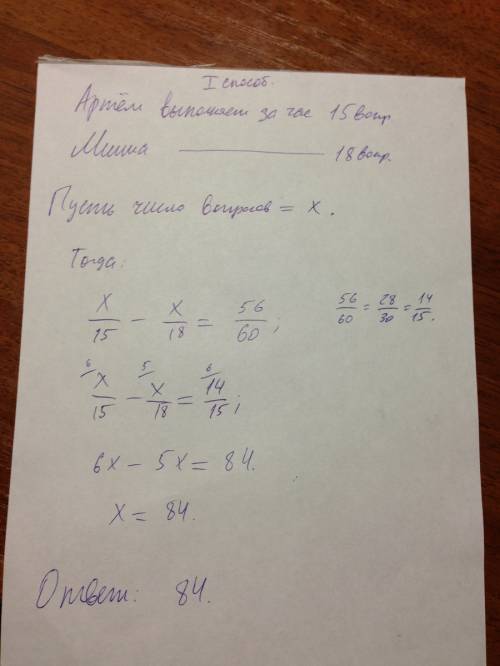 I способ.
Артём выполняет за час 15 вопр
Миша ——— 18 вопр.
Пусть число вопросов = x.
Тогда:
x/15 - x/18 = 56/60; 56/60 = 28/30 = 14/15.
6/ x/15 - 5/ x/18 = 6/ 14/15;
6x - 5x = 84.
x = 84.
Ответ: 84.